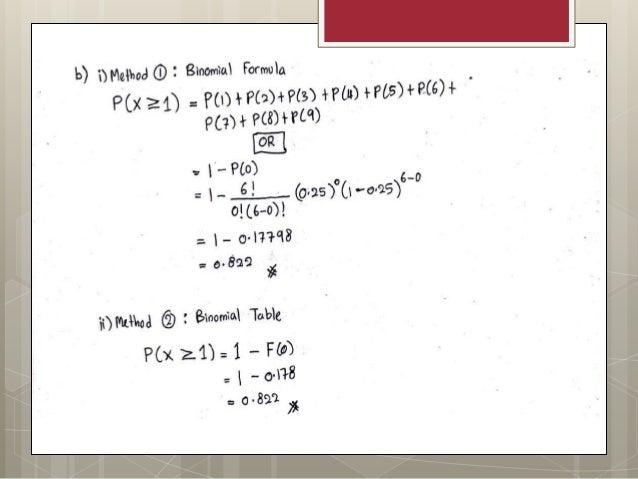 b) i) Method ① : Binomial Formula
P(X ≥ 1) = P(1) + P(2) + P(3) + P(4) + P(5) + P(6) +
P(7) + P(8) + P(9)
OR
= 1 - P(0)
= 1 - 6! / 0!(6-0)! (0.25)⁰ (1 - 0.25)⁶⁻⁰
= 1 - 0.17798
= 0.822
ii) Method ② : Binomial Table
P(X ≥ 1) = 1 - F(0)
= 1 - 0.178
= 0.822